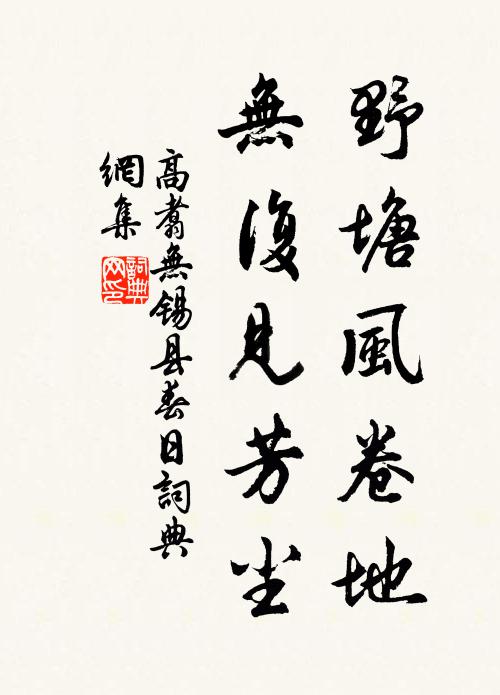 野塘風卷地
無復見芳尘
高翥無锡县春日詞典
網集
詞典
网印